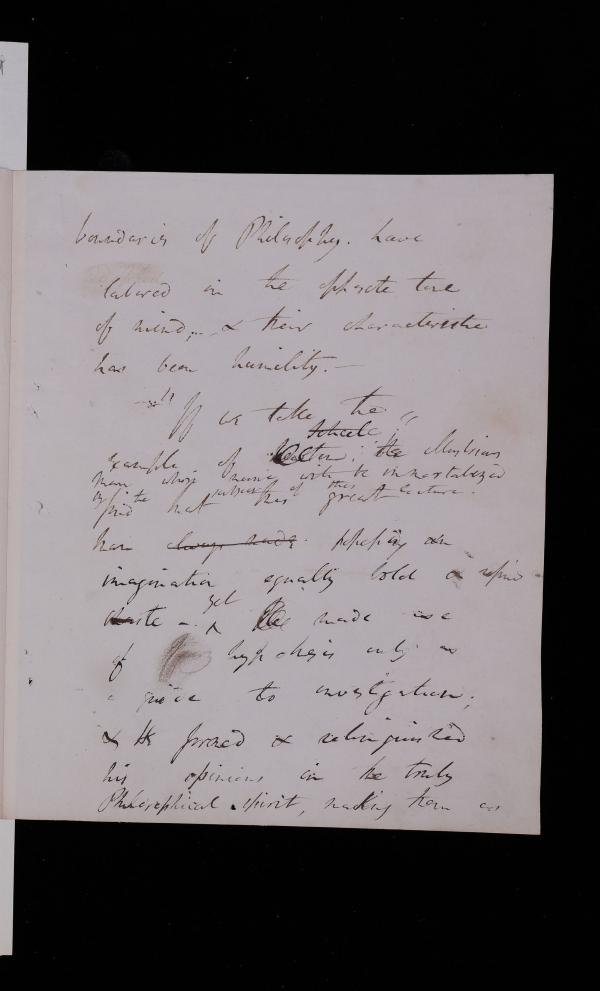 boundaries of Philosophy. have
labored in the opposite tone
of mind, & their characteristic
has been humility. —
If we take the
Scheele
example of ; the illustrious
man whose name will be immortalized
as the subject of this
find that his great lecture.
have always made possessing an
imagination equally bold &
chaste — yet He made use
of hypothesis only as
a guide to investigation;
& He formed & relinquished
his opinions in the truly
Philosophical spirit, making them as